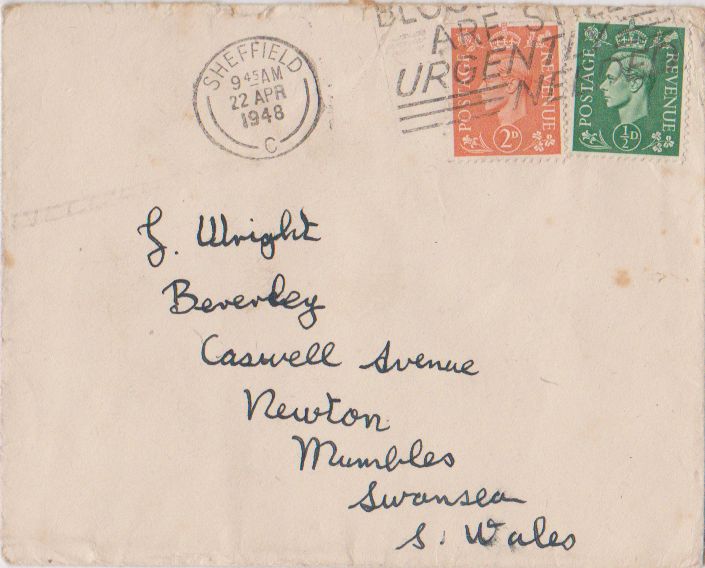 SHEFFIELD
9 45 AM
22 APR
1948
C
ARE
URGENTLY
POSTAGE REVENUE
2D
POSTAGE REVENUE
½D
Wright
Beverley
Caswell Avenue
Newton
Mumbles
Swansea
S. Wales